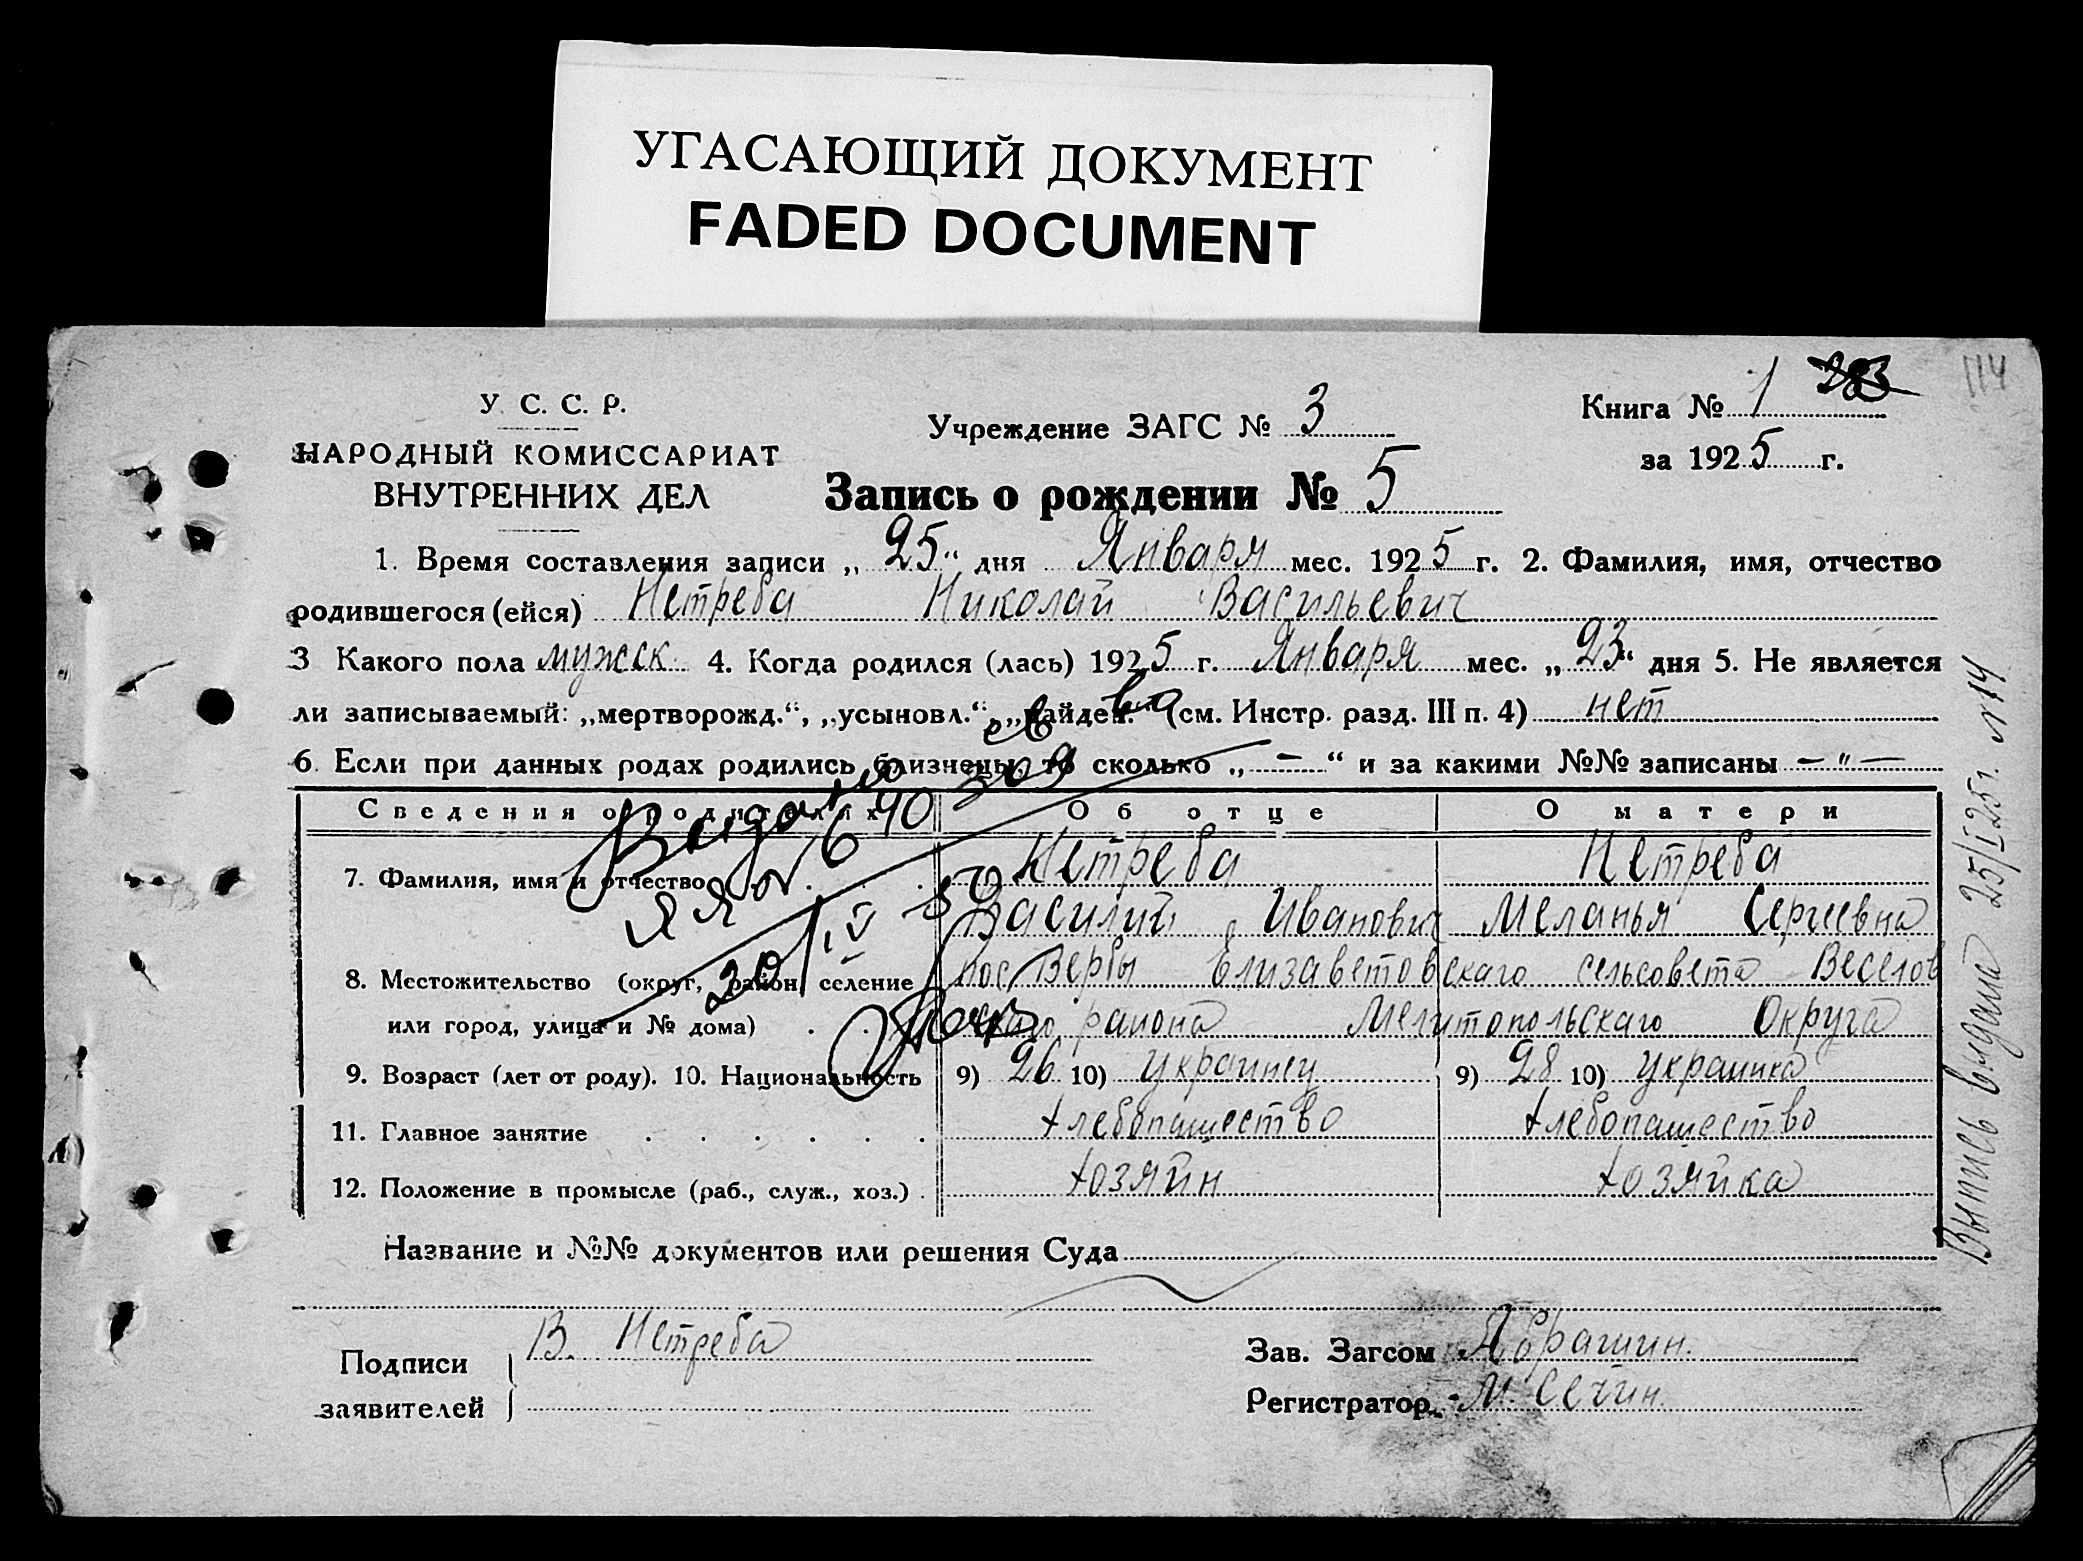 УГАСАЮЩИЙ ДОКУМЕНТ
FADED DOCUMENT
У. С. С. Р.
НАРОДНЫЙ КОМИССАРИАТ
ВНУТРЕННИХ ДЕЛ
Учреждение ЗАГС № 3
Книга № 1 283
114
за 1925 г.
Запись о рождении № 5
1. Время составления записи „25“ дня Января мес. 1925 г. 2. Фамилия, имя, отчество
родившегося (ейся) Нетреба Николай Васильевич
3 Какого пола мужск 4. Когда родился (лась) 1925 г. Января мес. „23“ дня 5. Не является
ли записываемый: „мертворожд.“, „усыновл.“, „найден.“ (см. Инстр. разд. III п. 4) нет
6. Если при данных родах родились близнецы, то сколько „ – “ и за какими №№ записаны – " –
Сведения о родителях Об отце О матери
7. Фамилия, имя и отчество Нетреба Нетреба
Василий Иванович Меланья Сергеевна
8. Местожительство (округ, район, селение пос Вербы Елизаветовскаго сельсовета Веселов
или город, улица и № дома) скаго района Мелитопольскаго Округа
9. Возраст (лет от роду). 10. Национальность 9) 26 10) украинец 9) 28 10) украинка
11. Главное занятие хлебопашество хлебопашество
12. Положение в промысле (раб., служ., хоз.) хозяин хозяйка
Название и №№ документов или решения Суда
Подписи В. Нетреба
заявителей
Зав. Загсом Абрашин.
Регистратор М. Сечин.
Выпись выдана 25/I 25 г. №14